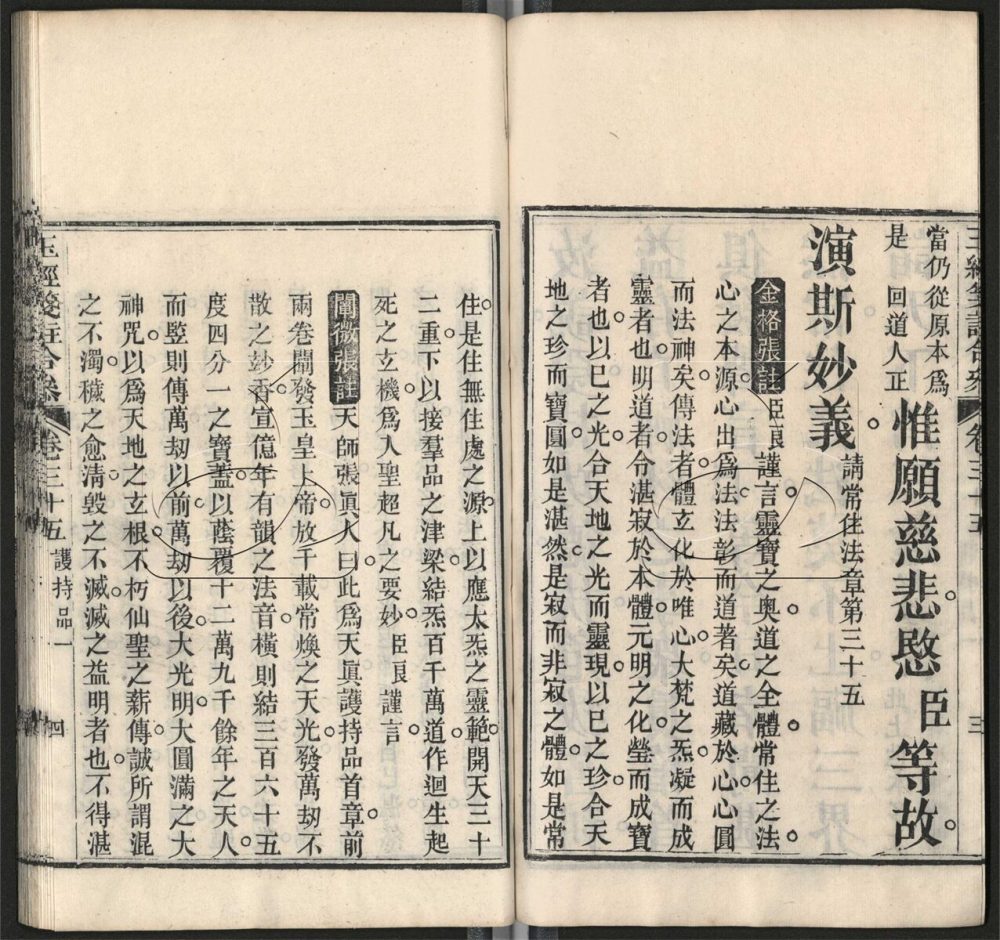 當仍從原本爲
是 回道人正
惟願慈悲愍臣等故
演斯妙義
請常住法章第三十五
金格張註臣良謹言靈寶之奥道之全體常住之法
心之本源心出爲法法彰而道著矣道藏於心心圓
而法神矣傳法者體立化於唯心大梵之炁凝而成
靈者也明道者令湛寂於本體元明之化瑩而成寶
者也以已之光合天地之光而靈現以已之珍合天
地之珍而寶圓如是湛然是寂而非寂之體如是常
住是住無住處之源上以應太炁之靈範開天三十
二重下以接羣品之津梁結炁百千萬道作迴生起
死之玄機爲入聖超凡之要妙臣良謹言
闡微張註天師張眞人曰此爲天眞護持品首章前
兩卷闡發玉皇上帝放千載常煥之天光發萬刼不
散之妙香宣億年有韻之法音橫則結三百六十五
度四分一之寶蓋以蔭覆十二萬九千餘年之天人
而竪則傳萬刼以前萬刼以後大光明大圓滿之大
神咒以爲天地之玄根不朽仙聖之薪傳誠所謂混
之不濁穢之愈清毀之不滅滅之益明者也不得湛
玉經箋註合纂 卷三十五 護持品一 四
卷三十五 三